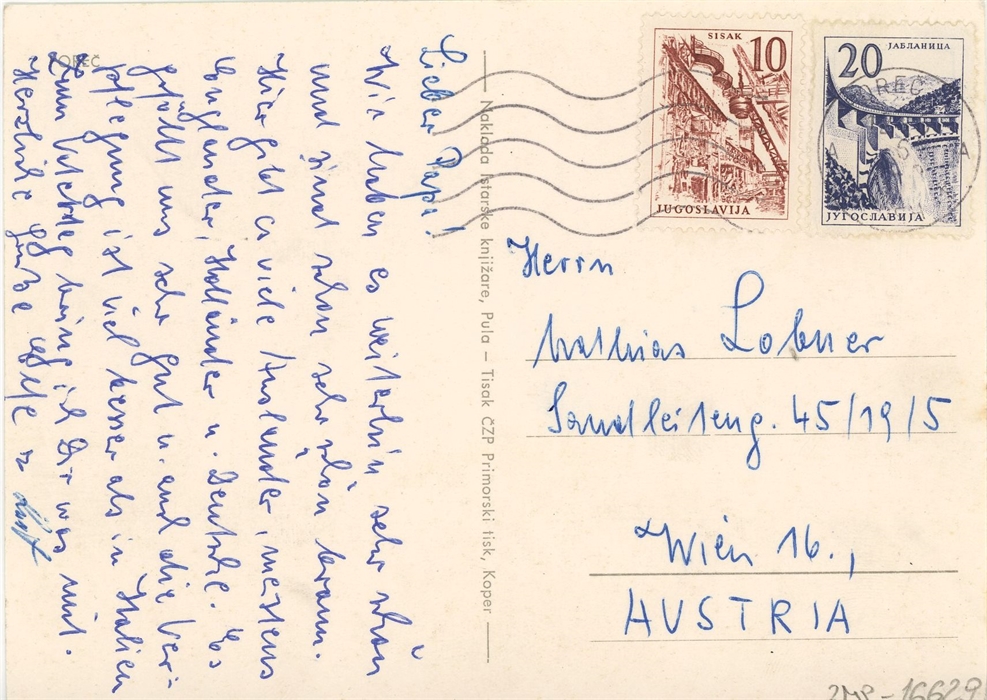 POREČ
Lieber Papi!
Wir haben es weiterhin sehr schön
und sind schon sehr schön braun.
Hier gibt es viele Ausländer, meistens
Engländer, Holländer u. Deutsche. Es
gefällt uns sehr gut u. auch die Ver-
pflegung ist viel besser als in Italien
Zum Vatertag bring ich Dir was mit.
Herzliche Grüße
Naklada Istarske knjižare, Pula – Tisak ČZP Primorski tisk, Koper
SISAK 10
JUGOSLAVIJA
20 ЈАБЛАНИЦА
ЈУГОСЛАВИЈА
Herrn
Mathias Lobner
Sandleiteng. 45/19/5
Wien 16.,
AUSTRIA
2MP-16629